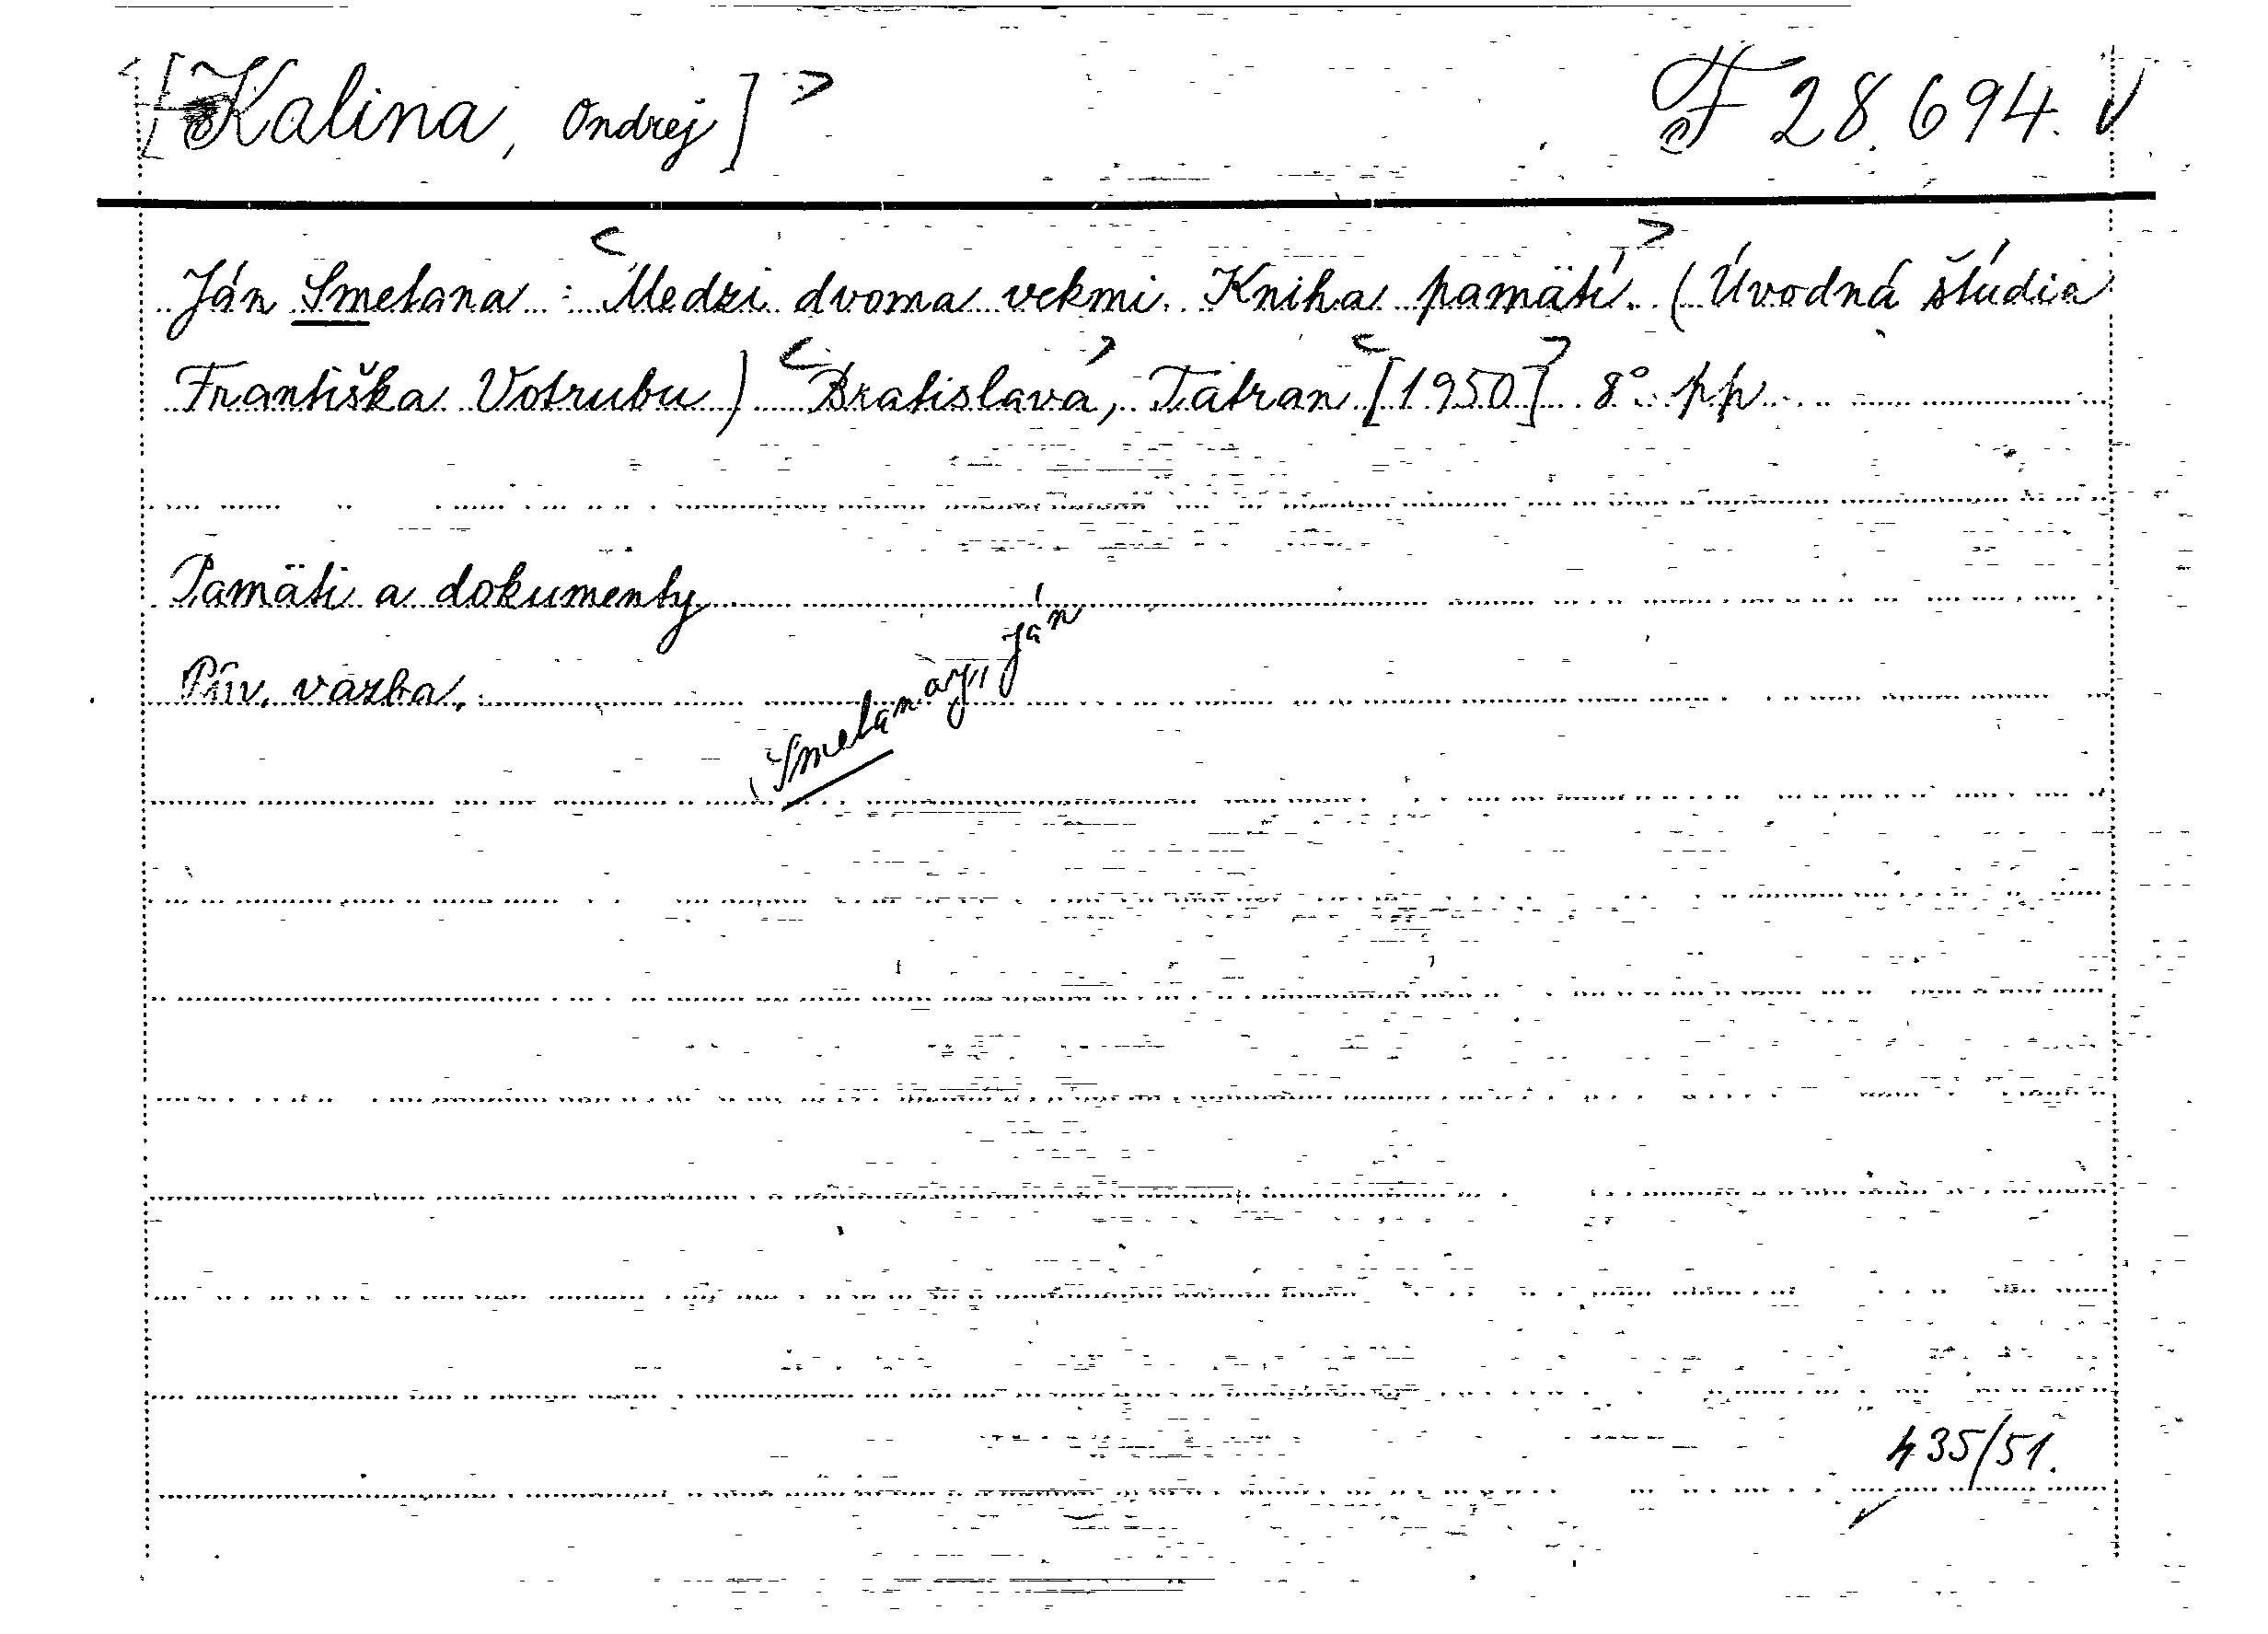 <[Kalina, Ondrej]> F 28.694.
Ján Smetana : <Medzi dvoma vekmi. Kniha pamätí.> (Úvodná štúdia
Františka Votrubu) <Bratislava>, Tatran <[1950]> 8° pp
Pamäti a dokumenty
Pův. vazba.
Smetanay, Ján
435/51.